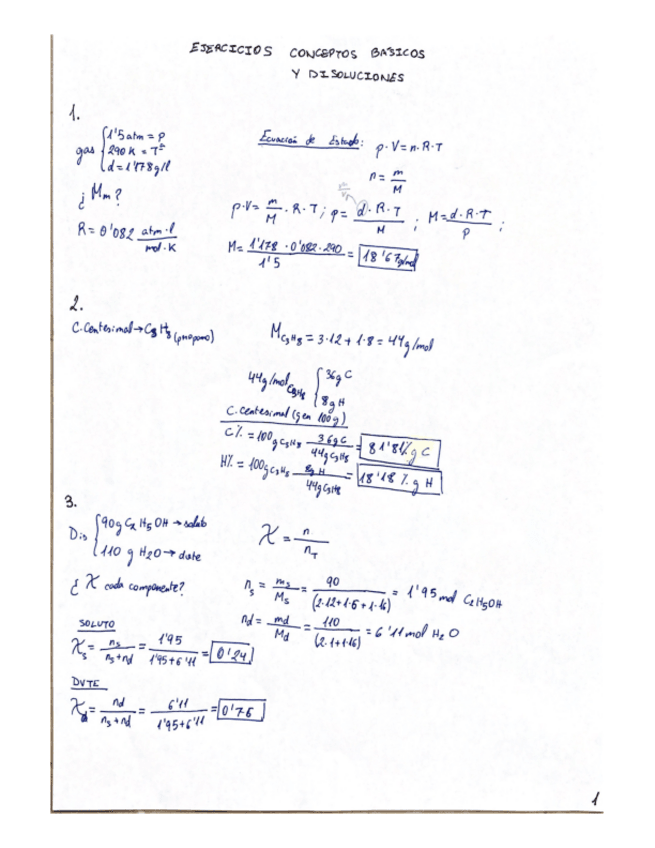 EJERCICIOS CONCEPTOS BASICOS
Y DISOLUCIONES
1.
gas { 1'5 atm = p
290 K = Tª
d = 1'178 g/l
¿ Mm ?
R = 0'082 atm·l / mol·K
Ecuación de Estado: p·V = n·R·T
n = m/M
p·V = m/M · R·T ; p = d·R·T / M ; M = d·R·T / p ;
M = 1'178 · 0'082 · 290 / 1'5 = 18'67 g/mol
2.
C. Centesimal → C3H8 (propano)
M C3H8 = 3·12 + 1·8 = 44 g/mol
44 g/mol C3H8 { 36g C
8g H
C. centesimal (g en 100g)
C% = 100g C3H8 36g C / 44g C3H8 = 81'81% g C
H% = 100g C3H8 8g H / 44g C3H8 = 18'18 % g H
3.
Dis { 90g C2H5OH → soluto
110 g H2O → dvte
χ = n / nT
¿ χ cada componente?
ns = ms/Ms = 90 / (2·12+1·6+1·16) = 1'95 mol C2H5OH
nd = md/Md = 110 / (2·1+1·16) = 6'11 mol H2O
SOLUTO
χs = ns / ns+nd = 1'95 / 1'95+6'11 = 0'24
DVTE
χd = nd / ns+nd = 6'11 / 1'95+6'11 = 0'76
1